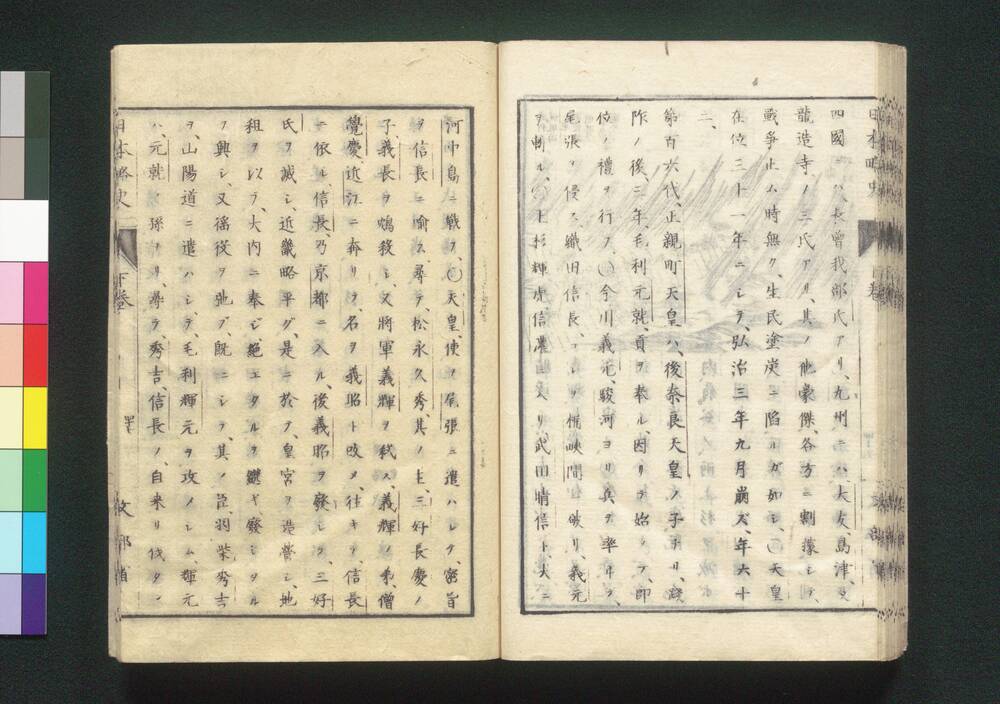 四國ニハ、長曾我部氏アリ、九州ニハ、大友、島津、
龍造寺ノ三氏アリ、其ノ他豪傑各方ニ割據シテ、
戰爭止ム時無ク、生民塗炭ニ陷ルガ如シ、〇天皇
在位三十一年ニシテ、弘治三年九月崩ズ、年六十
二、
第百六代、正親町天皇ハ、後奈良天皇ノ子ナリ、踐
阼ノ後、三年、毛利元就、貢ヲ奉ル、因リテ始メテ、即
位ノ禮ヲ行フ、〇今川義元、駿河ヨリ兵ヲ率ヰテ、
尾張ヲ侵ス、織田信長、
桶峽間ニ破リ、義元
ヲ斬ル、〇上杉輝虎、信濃ニ入リ、武田晴信ト、大ニ
河中島ニ戰フ、〇天皇、使ヲ尾張ニ遣ハシテ、密旨
ヲ信長ニ喩ス、尋デ、松永久秀、其ノ主、三好長慶ノ
子、義長ヲ鴆殺シ、又將軍義輝ヲ弑ス、義輝ノ弟、僧
覺慶、近江ニ奔リテ、名ヲ義昭ト改メ、往キテ、信長
ニ依ル、信長、乃京都ニ入ル、後義昭ヲ發シテ、三好
氏ヲ滅シ、近畿略平グ、是ニ於テ、皇宮ヲ造營シ、地
租ヲ以テ、大内ニ奉ジ、絕エタルヲ繼ギ、廢シタル
ヲ興シ、又徭役ヲ弛ブ、既ニシテ、其ノ臣、羽柴秀吉
ヲ、山陽道ニ遣ハシテ、毛利輝元ヲ攻メシム、輝元
ハ、元就ノ孫ナリ、尋デ、秀吉、信長ノ、自來リ伐タン
日本略史
下卷
文部省